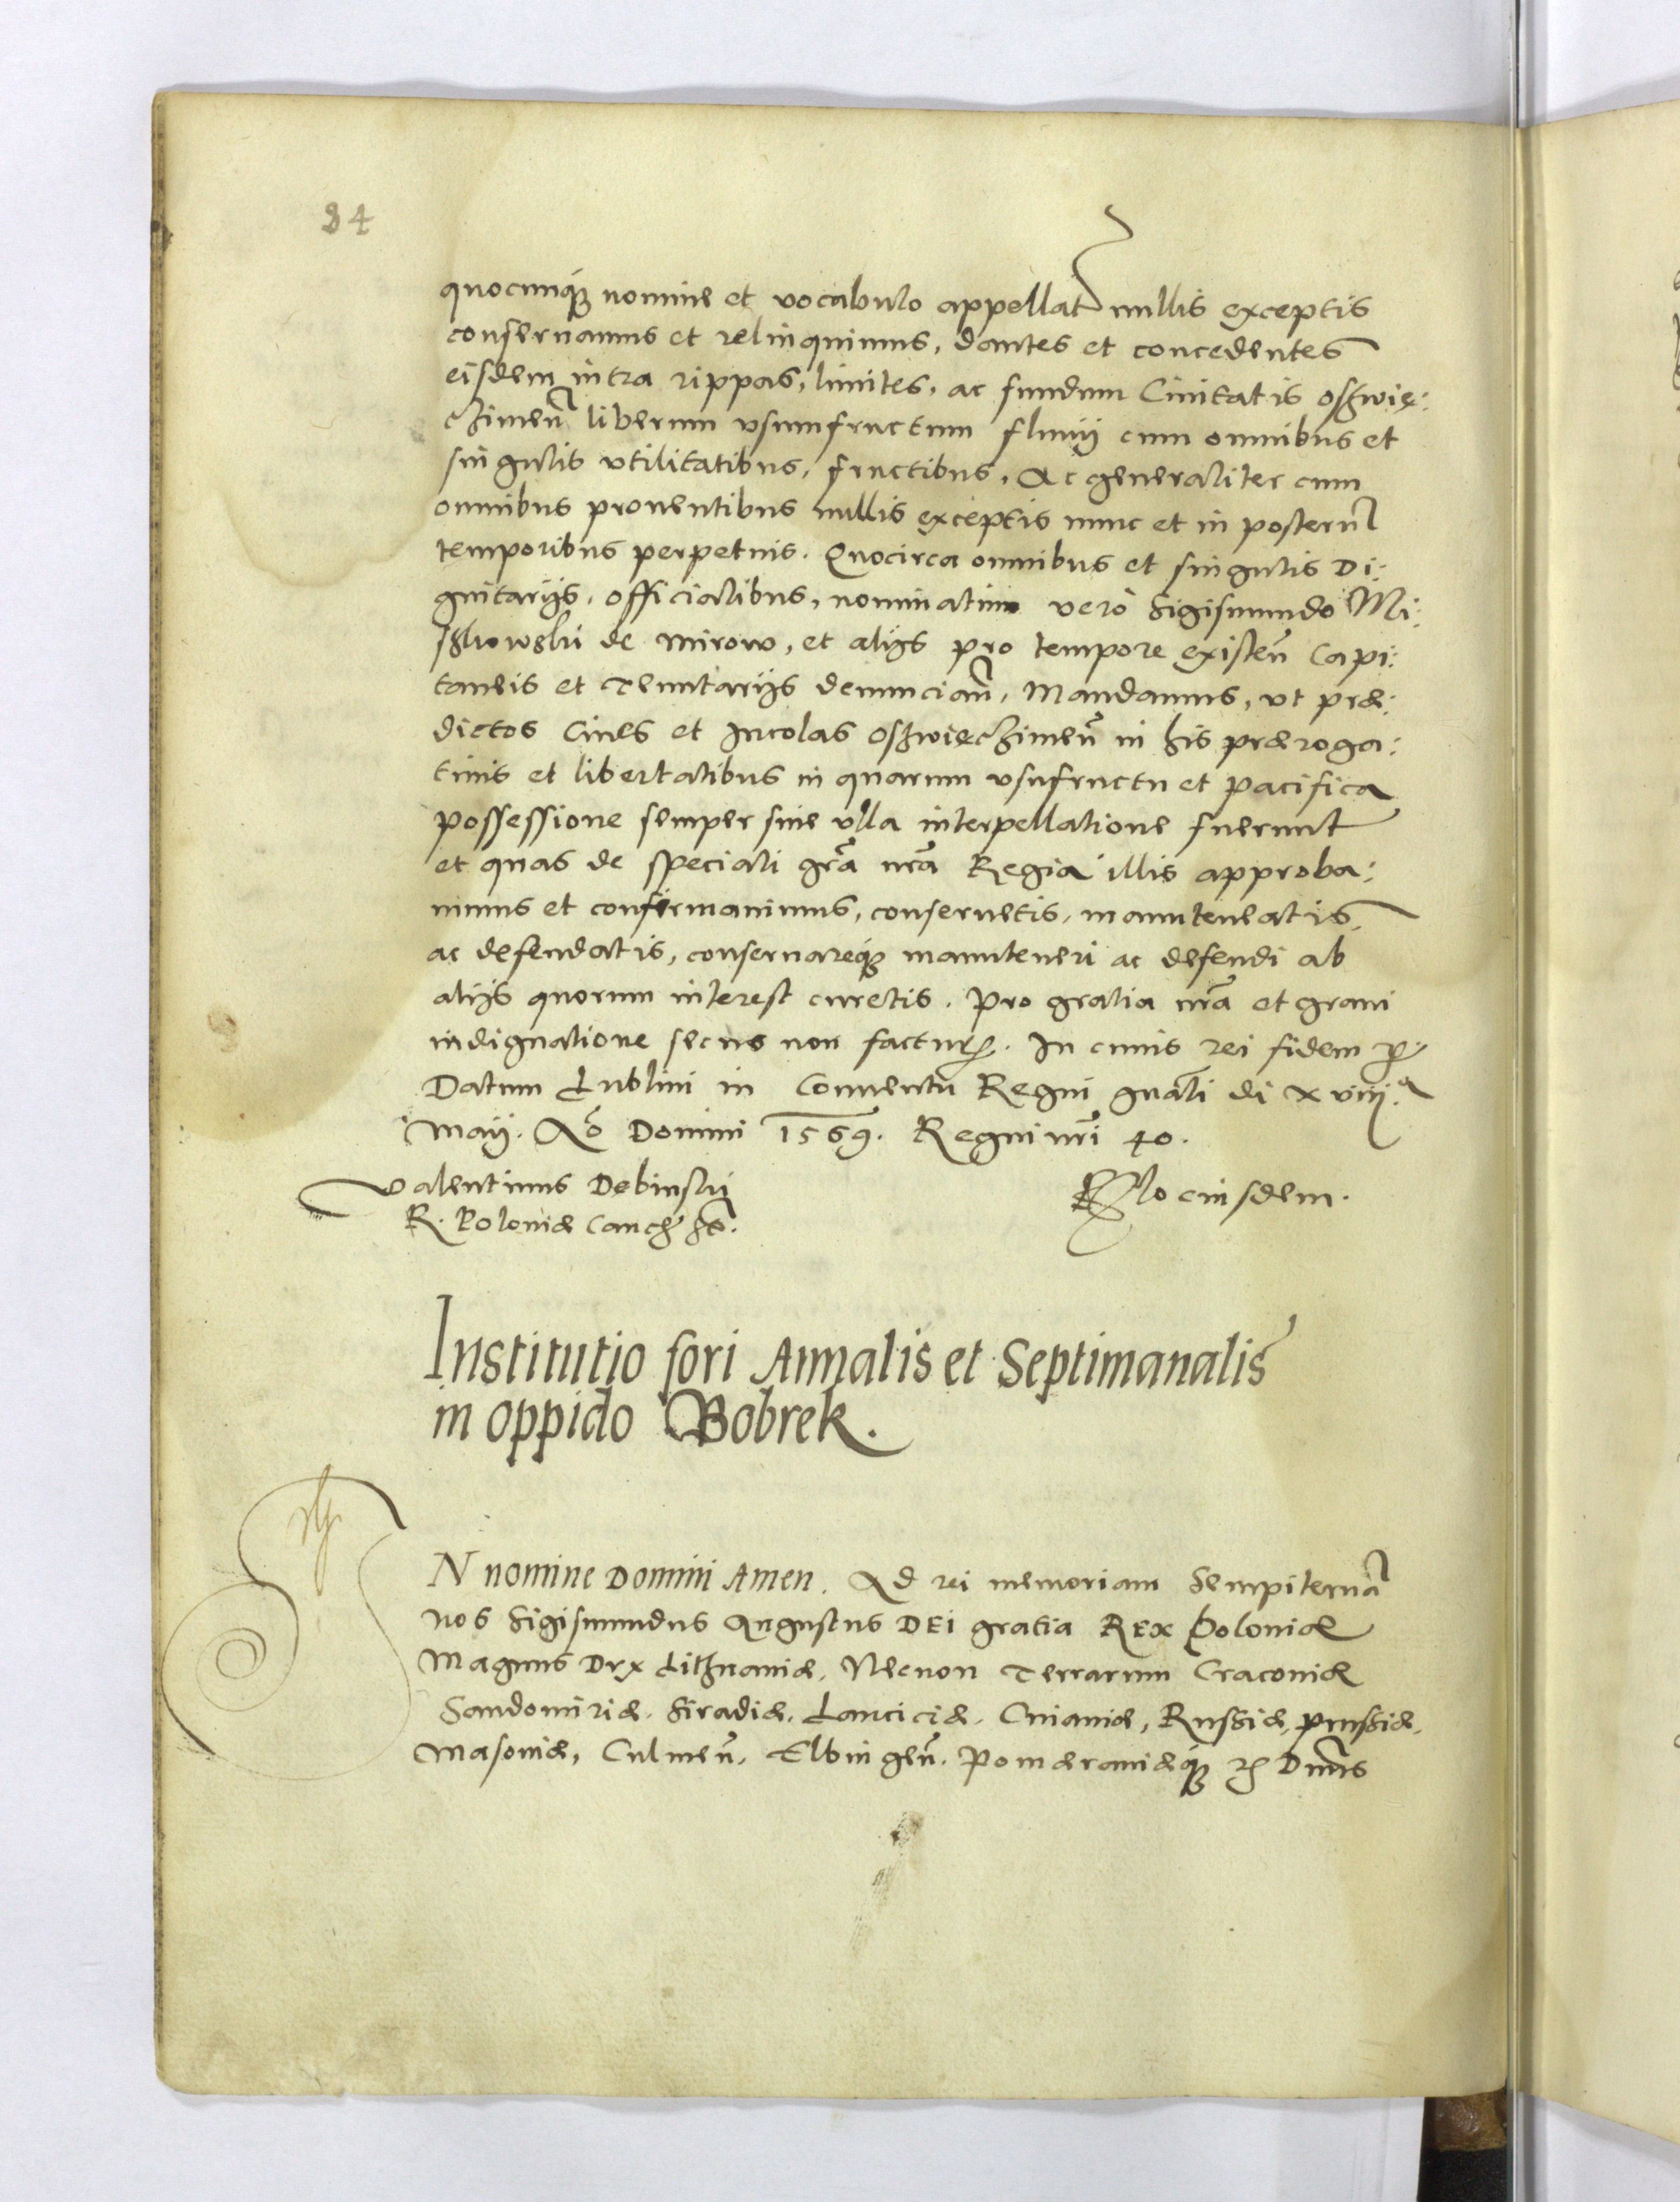 84
quocunq₃ nomine et vocabulo appellat nullis exceptis
conseruamus et relinquimus, dantes et concedentes
eisdem intra rippas, limites, ac fundum Ciuitatis Oszwię:
czimeñ liberum vsumfructum fluuij cum omnibus et
singulis vtilitatibus, fructibus, Ac generaliter cum
omnibus prouentibus nullis exceptis nunc et in posterũ
temporibus perpetuis. Quocirca omnibus et singulis Di:
gnitarijs, officialibus, nominatim vero Sigismundo Mi:
szkowski de Mirow, et alijs pro tempore existeñ Capi:
taneis et Tenutarijs denunciañ, Mandamus, vt præ:
dictos Ciues et Incolas Oszwięczimeñ in his præroga:
tiuis et libertatibus in quarum vsufructu et pacifica
possessione semper sine vlla interpellatione fuerunt
et quas de speciali grã nrã Regia illis approba:
uimus et confirmauimus, conseruetis, manuteneatis,
ac defendatis, conseruareq₃ manuteneri ac defendi ab
alijs quorum interest curetis. Pro gratia nrã et graui
indignatione secus non factur. In cuius rei fidem
Datum Lublini in Conuentu Regni gnãli di xviij.a
Maij. Ao Domini 1569. Regni nri 40.
Valentinus Debinski
R. Poloniæ Canc sst.
Rlo eiusdem.
Institutio fori Annalis et Septimanalis
in oppido Bobrek.
IN nomine Domini Amen. Ad rei memoriam Sempiternã
Nos Sigismundus Augustus DEI gratia REX Poloniæ
Magnus Dux Lithuaniæ, Necnon Terrarum Cracouiæ
Sandomiriæ. Siradiæ. Lanciciæ. Cuiauiæ, Russiæ, Prussiæ.
Masouiæ, Culmeñ. Elbingeñ. Pomæraniæq₃ Dnns